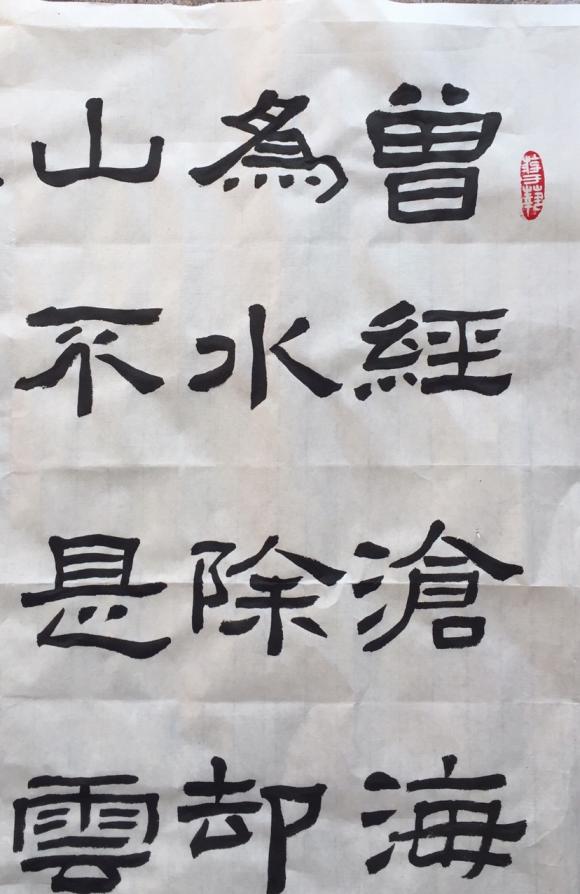 曾經滄海
為水除却
山不是雲